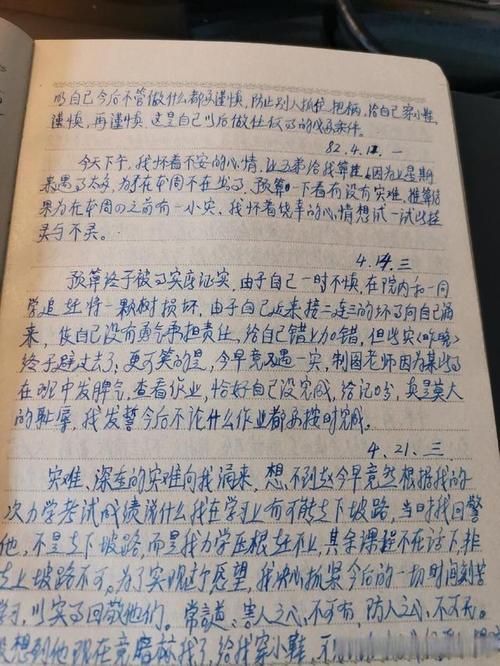 的自己今后不管做什么都要谨慎，防止别人抓住把柄，给自己穿小鞋，
谨慎，再谨慎，这是自己以后做任何事的成条件。
82.4.12.一
今天下午，我怀着不安的心情，让给我算挂，因为上星期
来遇了太多，为在本周不在出了，预算一下看有没有灾难，推算结
果为在本周四之前有一小灾，我怀着侥幸的心情想试一试此挂
灵与不灵。
4.14.三
预算终于被事实证实，由于自己一时不慎，在院内和一同
学追赶将一颗树损坏，由于自己近来接二连三的坏事向自己涌
来，使自己没有勇气承担责任，给自己错上加错，但此灾(昨晚)
终于避过去了，更可笑的是，今早竟又遇一灾，制图老师因为某些
在班中发脾气，查看作业，恰好自己没完成，给记0分，真是莫大
的耻辱，我发誓今后不论什么作业都要按时完成。
4.21.三
灾难，深重的灾难向我涌来，想不到今早竟然根据我的
次力学考试成绩说什么我在学习上有可能走下坡路，当时我回警
他，不是走下坡路，而是我力学压根赶不上，其余课程不在话下，非
走上坡路不可。为了实现这个愿望，我决心抓紧今后的一切时间刻苦
学习，以实了回敬他们。常言道：害人之心不可有，防人之心不可无。
没想到他现在竟暗我了，给我穿小鞋，